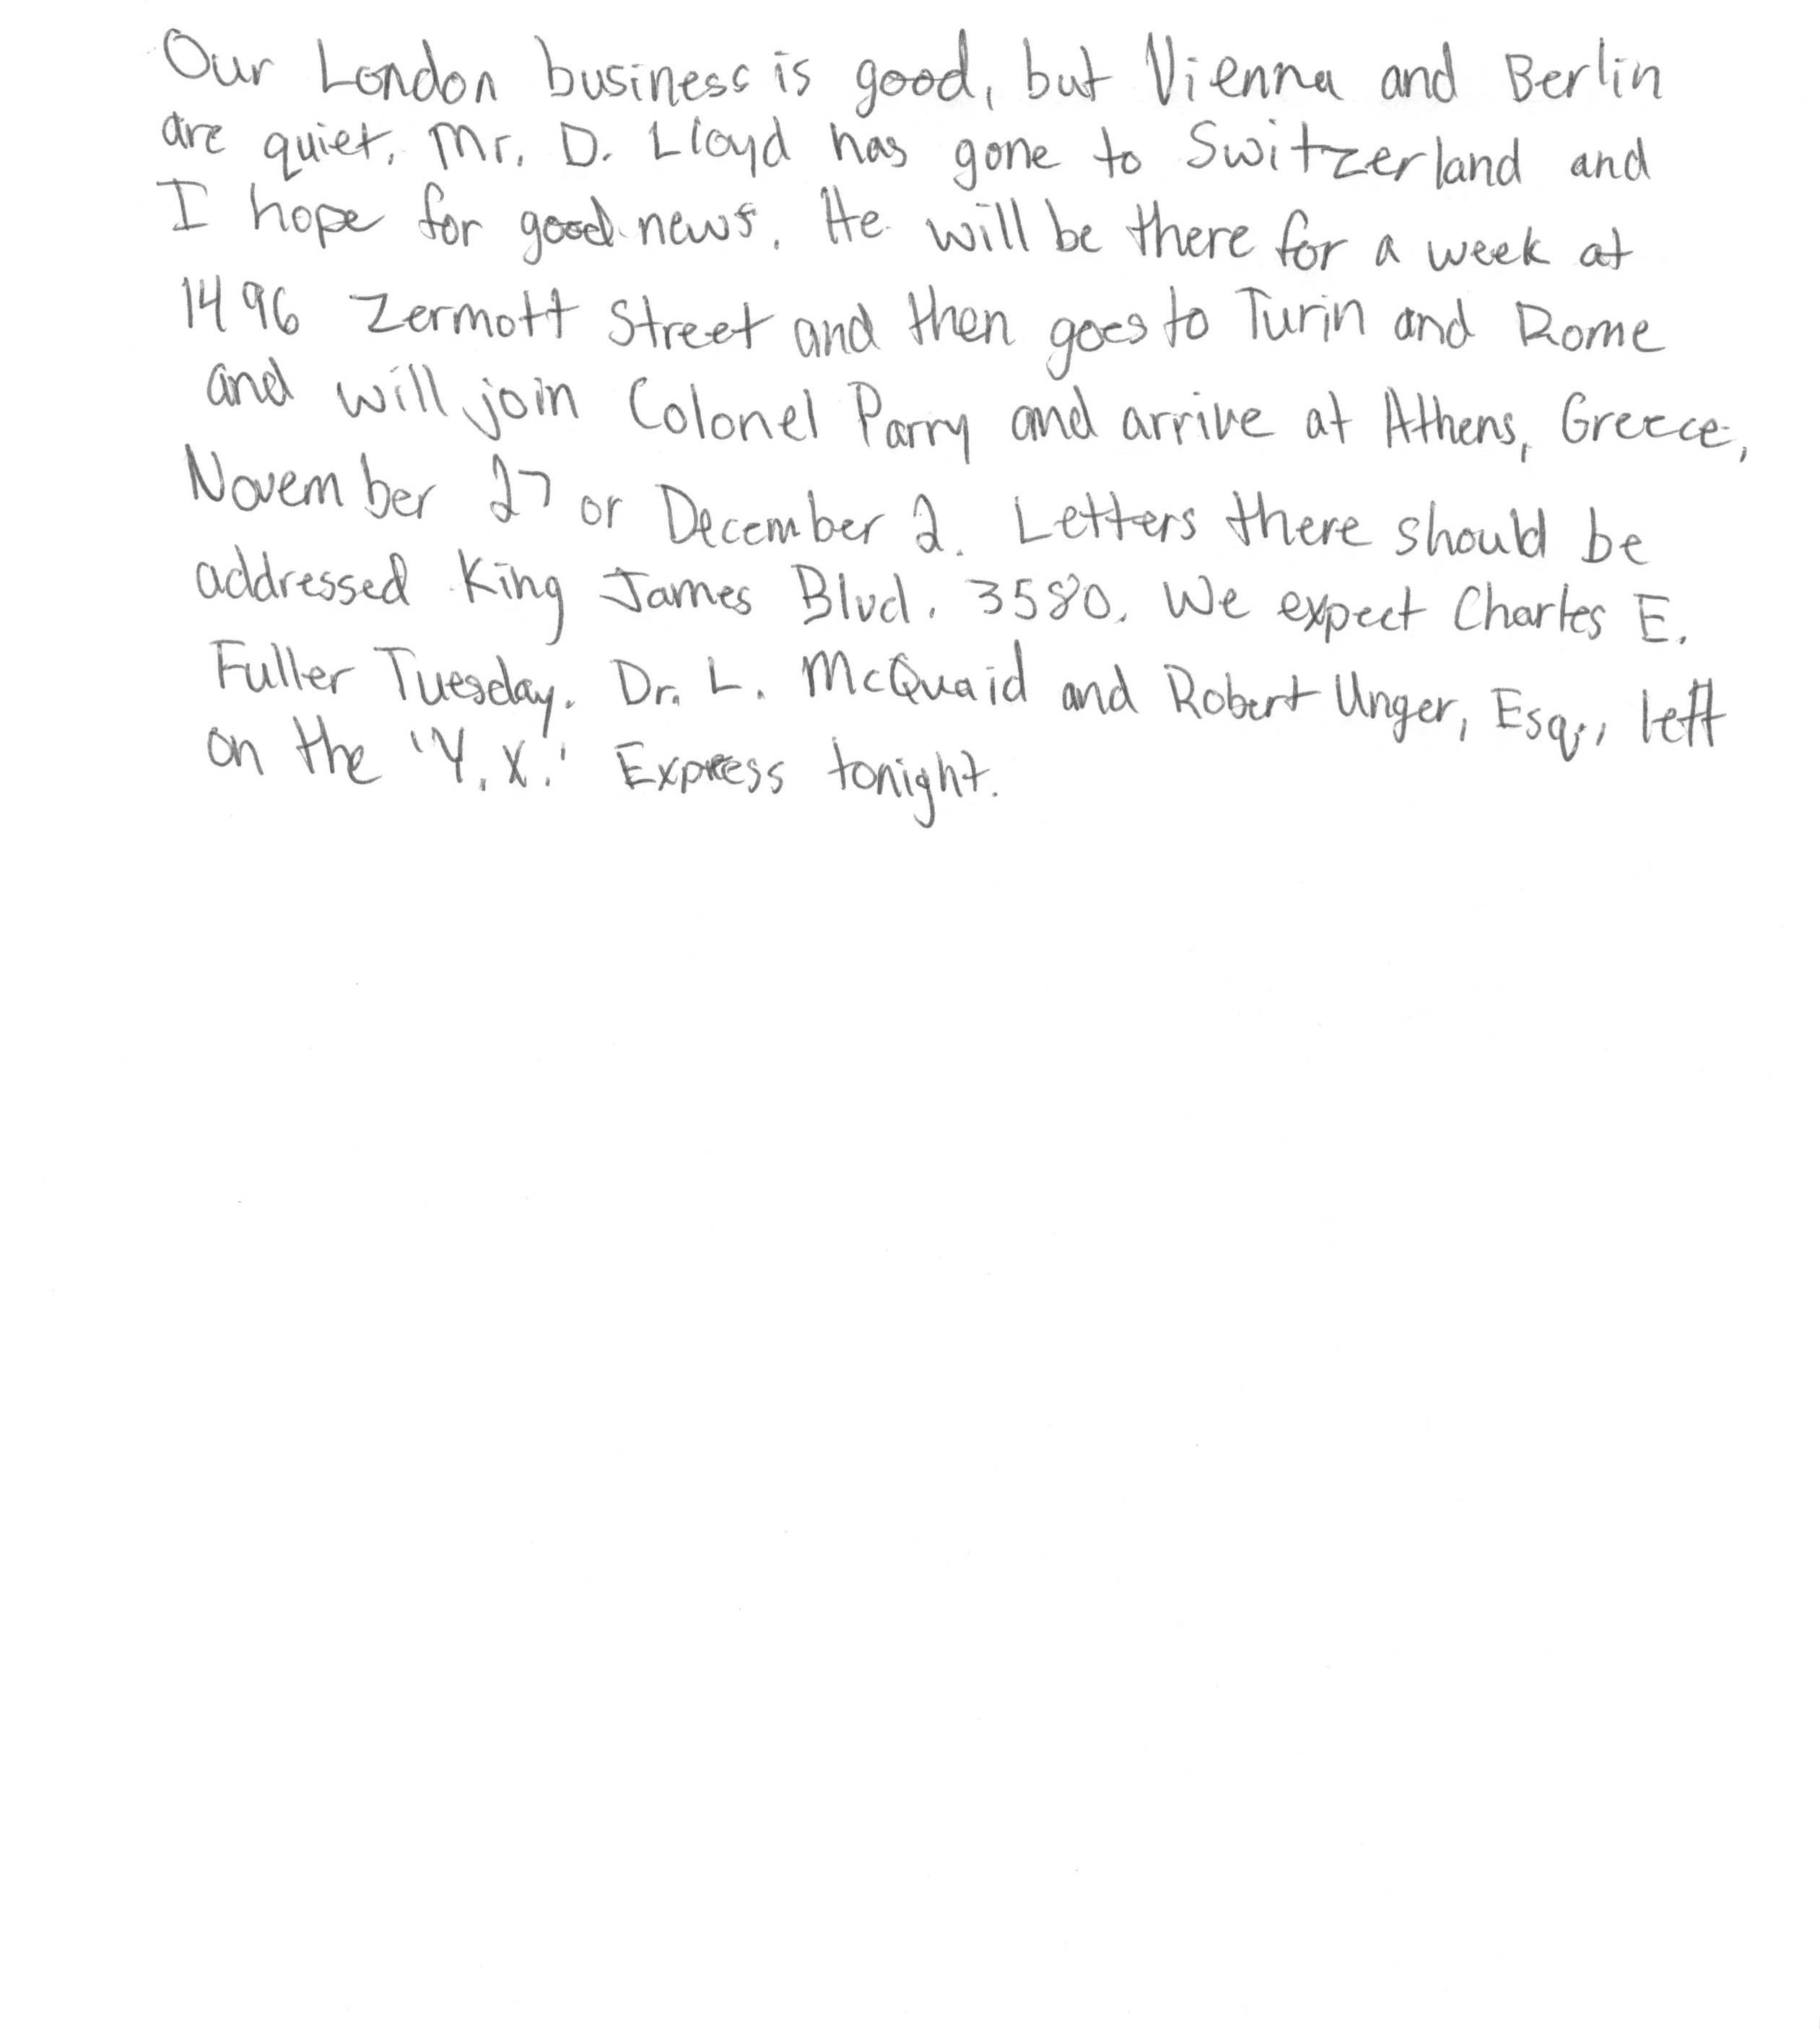 Our London business is good, but Vienna and Berlin
are quiet. Mr. D. Lloyd has gone to Switzerland and
I hope for good news. He will be there for a week at
1496 Zermott Street and then goes to Turin and Rome
and will join Colonel Parry and arrive at Athens, Greece,
November 27 or December 2. Letters there should be
addressed King James Blvd. 3580. We expect Charles E.
Fuller Tuesday. Dr. L. McQuaid and Robert Unger, Esq., left
on the 'Y.X.' Express tonight.